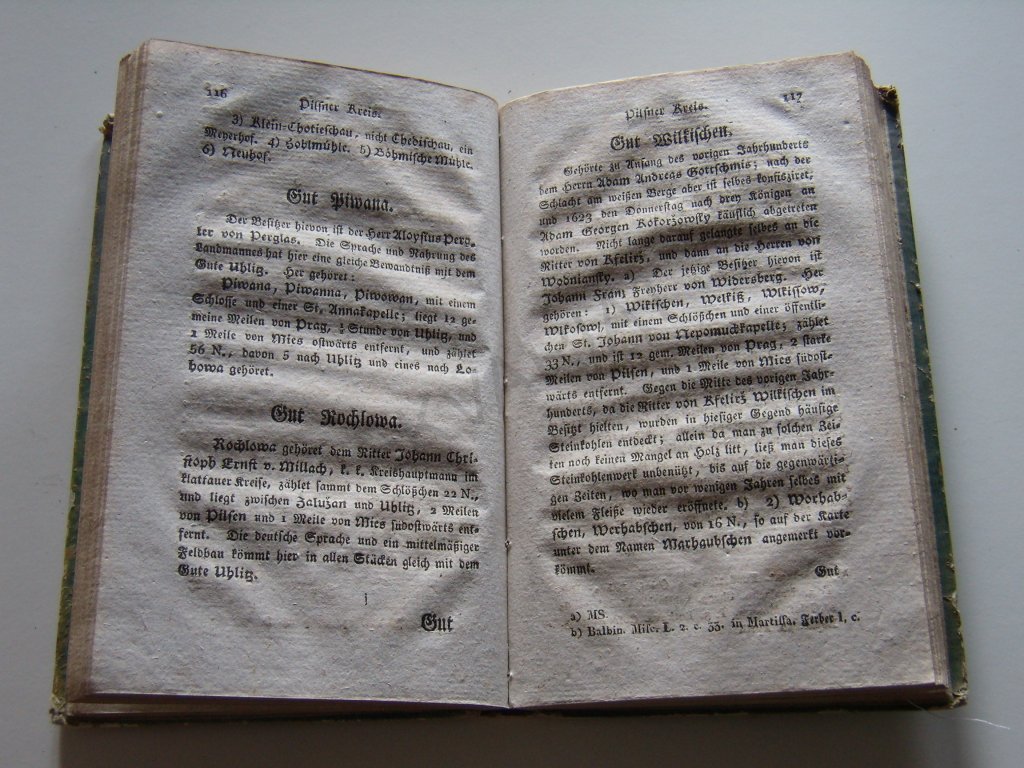 116
Pilsner Kreis.
3) Klein-Chotieschau, nicht Chedischau, ein
Meyerhof. 4) Hoblmühle. 5) Böhmische Mühle.
6) Neuhof.
Gut Piwana.
Der Besitzer hievon ist der Herr Aloysius Perg-
ler von Perglas. Die Sprache und Nahrung des
Landmannes hat hier eine gleiche Bewandtniß mit dem
Gute Uhlitz. Her gehöret:
Piwana, Piwanna, Piwowan, mit einem
Schlosse und einer St. Annakapelle; liegt 12 ge-
meine Meilen von Prag, ½ Stunde von Uhlitz, und
1 Meile von Mies ostwärts entfernt, und zählet
56 N., davon 5 nach Uhlitz und eines nach Lo-
howa gehöret.
Gut Rochlowa.
Rochlowa gehöret dem Ritter Johann Chri-
stoph Ernst v. Millach, k. k. Kreishauptmann im
klattauer Kreise, zählet sammt dem Schlößchen 22 N.,
und liegt zwischen Zalužan und Uhlitz, 2 Meilen
von Pilsen und 1 Meile von Mies südostwärts ent-
fernt. Die deutsche Sprache und ein mittelmäßiger
Feldbau kömmt hier in allen Stücken gleich mit dem
Gute Uhlitz.
Gut
Pilsner Kreis.
117
Gut Wilkischen.
Gehörte zu Anfang des vorigen Jahrhunderts
dem Herrn Adam Andreas Gottschmis; nach der
Schlacht am weißen Berge aber ist selbes konfisziret,
und 1623 den Donnerstag nach drey Königen an
Adam Georgen Kokoržowsky käuflich abgetreten
worden. Nicht lange darauf gelangte selbes an die
Ritter von Kfelirž, und dann an die Herren von
Wodniansky. a) Der jetzige Besitzer hievon ist
Johann Franz Freyherr von Widersberg. Her
gehören: 1) Wikischen, Welkiß, Wlkissow,
Wlkosowl, mit einem Schlößchen und einer öffentli-
chen St. Johann von Nepomuckkapelle; zählet
33 N., und ist 12 gem. Meilen von Prag, 2 starke
Meilen von Pilsen, und 1 Meile von Mies südost-
wärts entfernt. Gegen die Mitte des vorigen Jahr-
hunderts, da die Ritter von Kfelirž Wilkischen im
Besitz hielten, wurden in hiesiger Gegend häufige
Steinkohlen entdeckt; allein da man zu solchen Zei-
ten noch keinen Mangel an Holz litt, ließ man dieses
Steinkohlenwerk unbenützt, bis auf die gegenwärti-
gen Zeiten, wo man vor wenigen Jahren selbes mit
vielem Fleiße wieder eröffnete. b) 2) Worhab-
schen, Werhabschen, von 16 N., so auf der Karte
unter dem Namen Warhaubschen angemerkt vor-
kömmt.
Gut
a) MS.
b) Balbin. Misc. L. 2. c. 33. in Martissa. Ferber l. c.